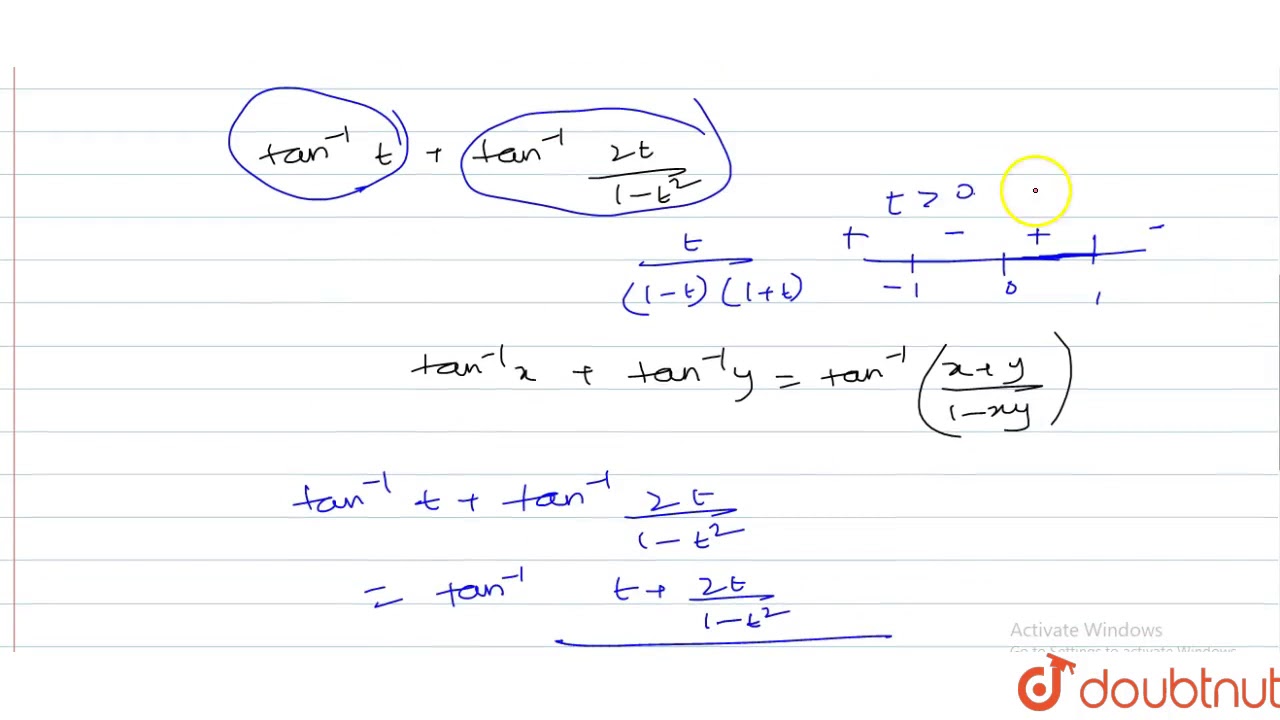 tan⁻¹ t + tan⁻¹ 2t/(1-t²)
t > 0
+ - + -
t/((1-t)(1+t))
-1 0 1
tan⁻¹x + tan⁻¹y = tan⁻¹ ((x+y)/(1-xy))
tan⁻¹ t + tan⁻¹ 2t/(1-t²)
= tan⁻¹ t + 2t/(1-t²)
Activate Windows
Go to Settings to activate Windows.
doubtnut